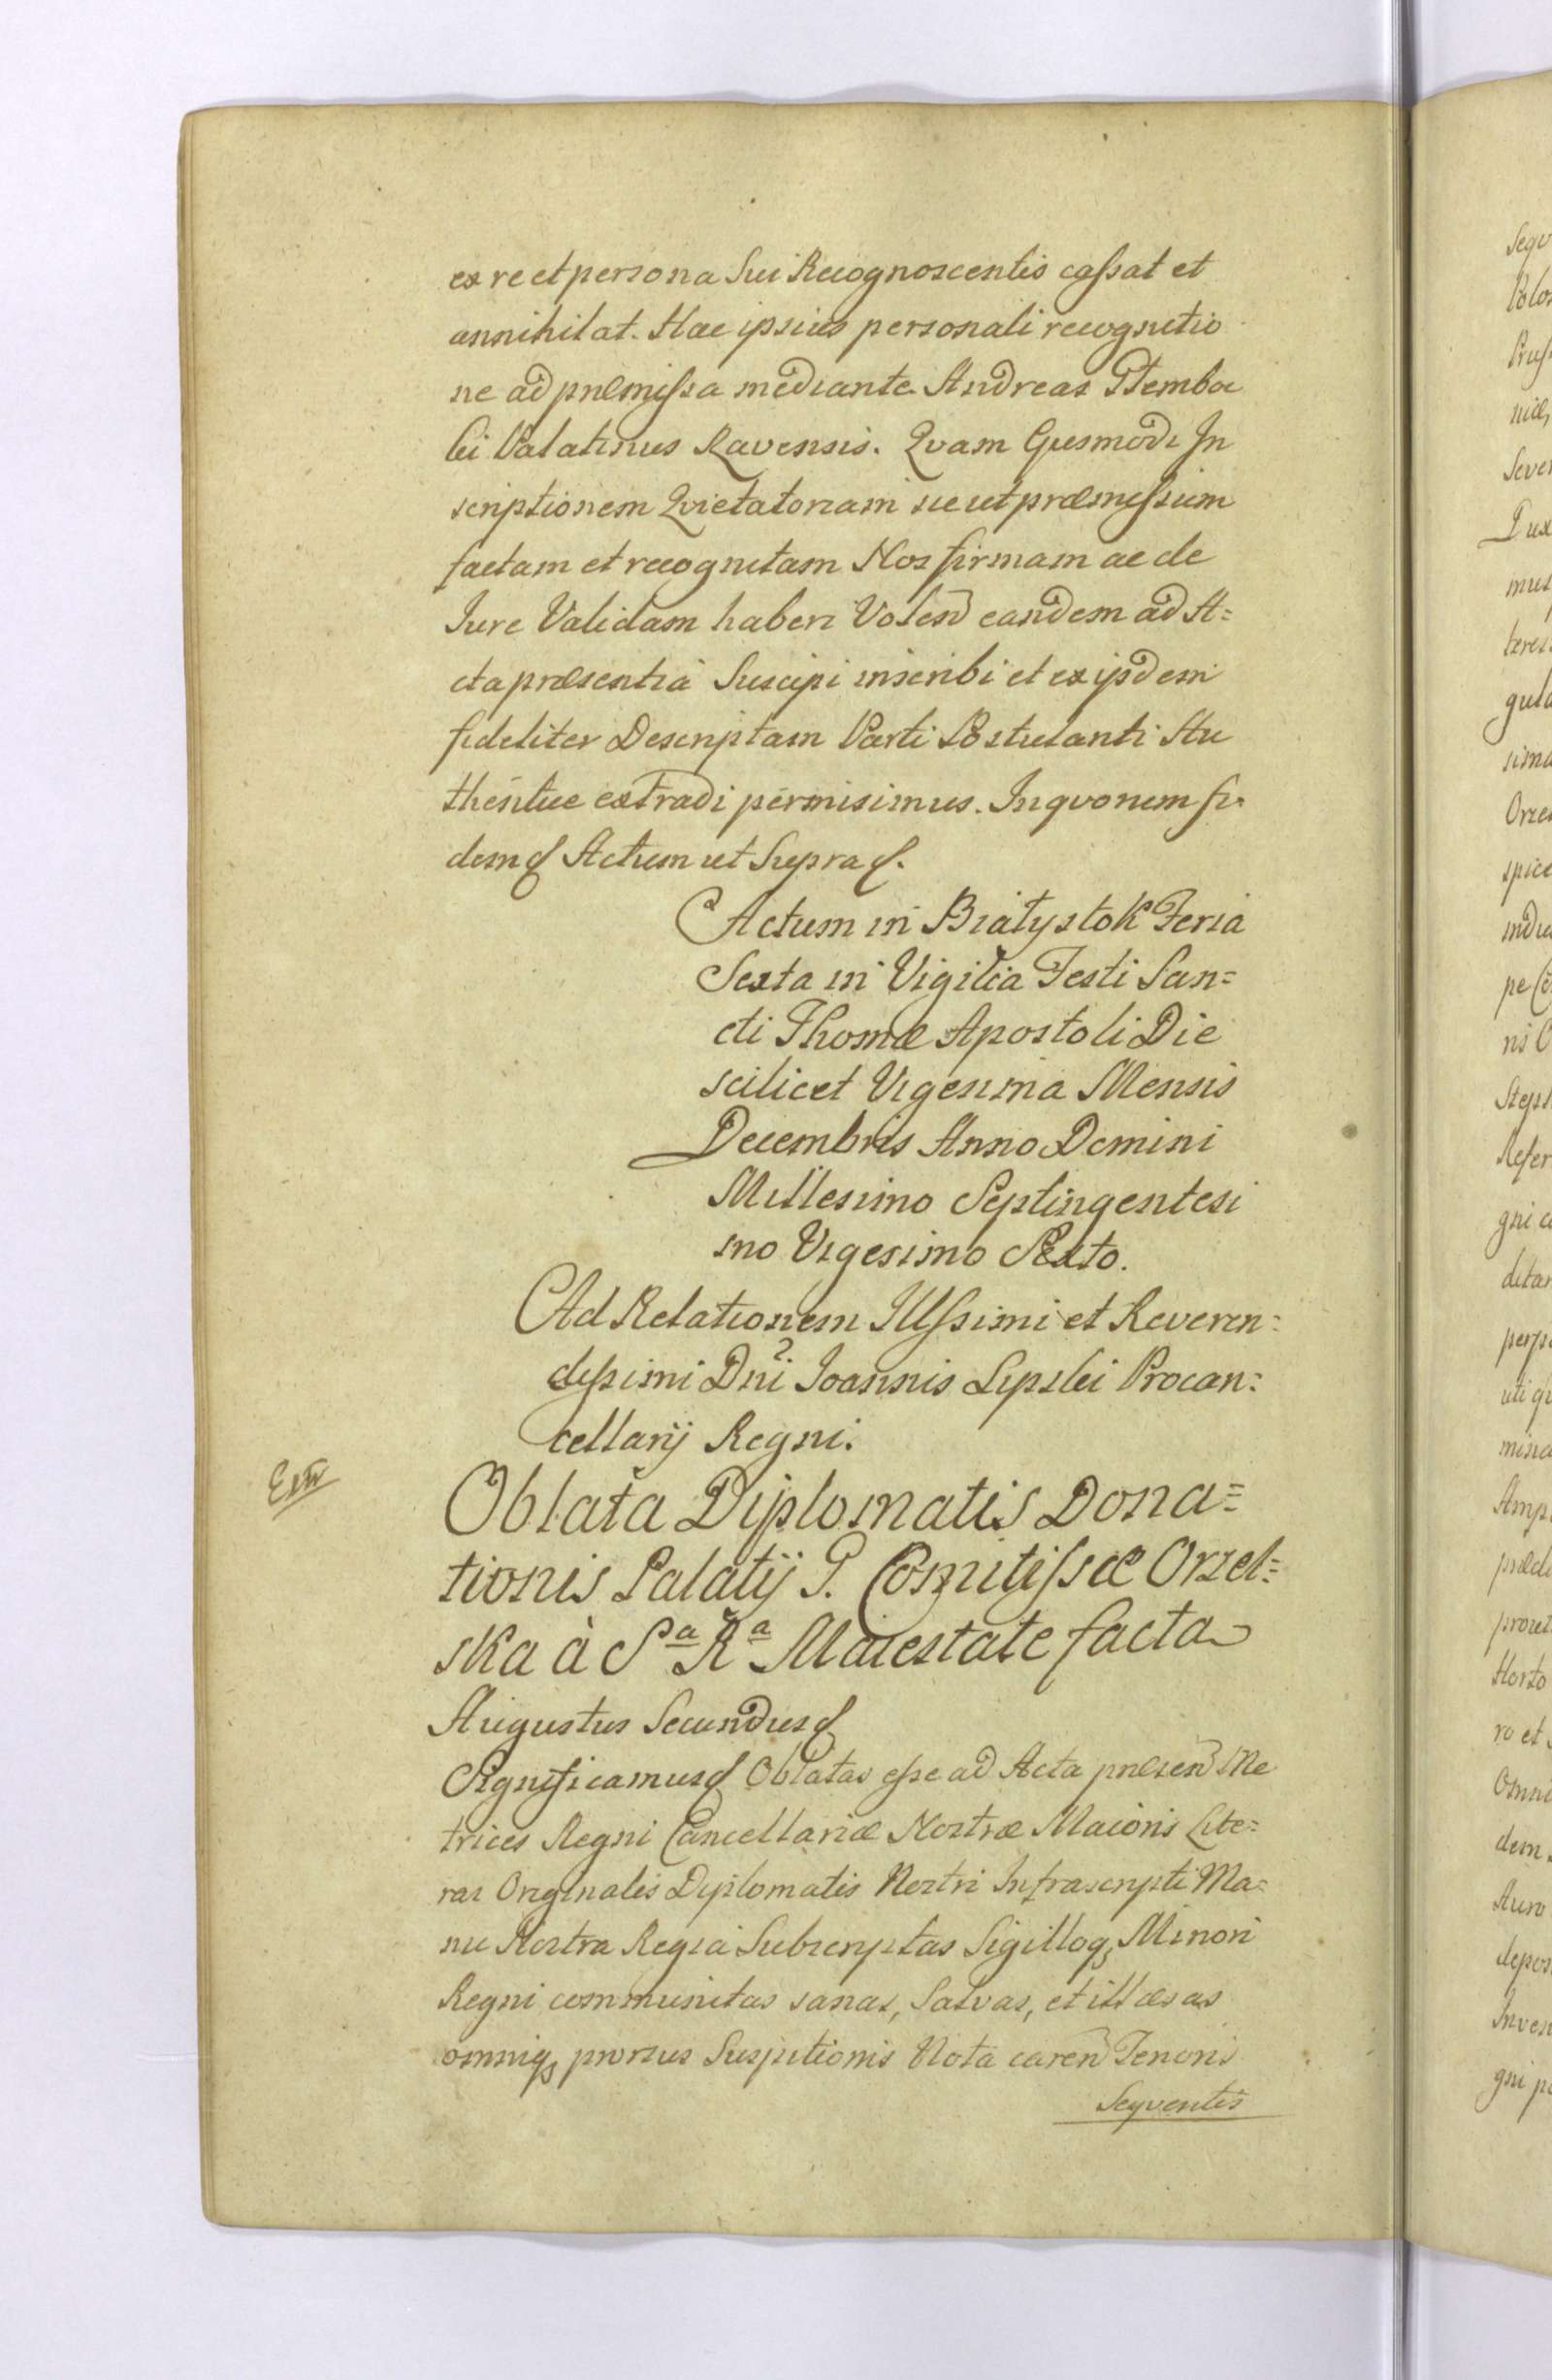 ex re et persona Sui Recognoscentis cassat et
annihilat. Hac ipsius personali recognitio
ne ad præmissa mediante. Andreas Dembow
ski Palatinus Ravensis. Quam Ejusmodi In
scriptionem Quietatoriam sic ut præmissum
factam et recognitam Nos firmam ac de
Jure Validam haberi Volen eandem ad A=
cta præsentia Suscipi inscribi et ex ijsdem
fideliter Descriptam Parti Postulanti Au
thentice extradi permisimus. In quorum fi=
dem Actum ut Supra
Actum in Białystok Feria
Sexta in Vigilia Festi San=
cti Thomæ Apostoli Die
scilicet Vigesima Mensis
Decembris Anno Domini
Millesimo Septingentesi
mo Vigesimo Sexto.
Ad Relationem Illssimi et Reveren=
dissimi Dni Joannis Lipski Procan=
cellarij Regni.
Oblata Diplomatis Dona=
tionis Palatij G. Comitissæ Orzel=
ska à Sa Ra Maiestate facta
Augustus Secundus
Significamus Oblatas esse ad Acta præsen Me
trices Regni Cancellariæ Nostræ Maioris Lite=
ras Originales Diplomatis Nostri Infrascripti Ma=
nu Nostra Regia Subscriptas Sigilloq Minori
Regni communitas sanas, Salvas, et illæsas
omniq prorsus Suspitionis Nota caren Tenoris
Sequentis
Segu
mus
gula
sima
spice